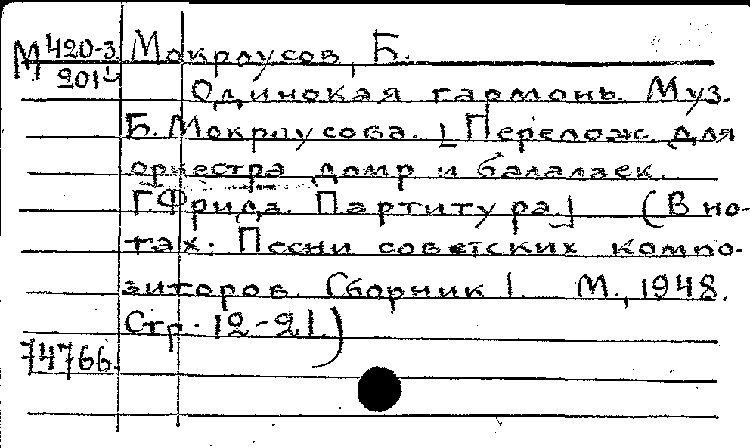 М 420-3 Мокроусов, Б.
201
Одинокая гармонь. Муз.
Б. Мокроусова. [Перелож. для
оркестра домр и балалаек.
Г. Фрида. Партитура.] (В но-
тах: Песни советских компо-
зиторов. Сборник 1. М., 1948.
Стр. 12-21.)
74766.